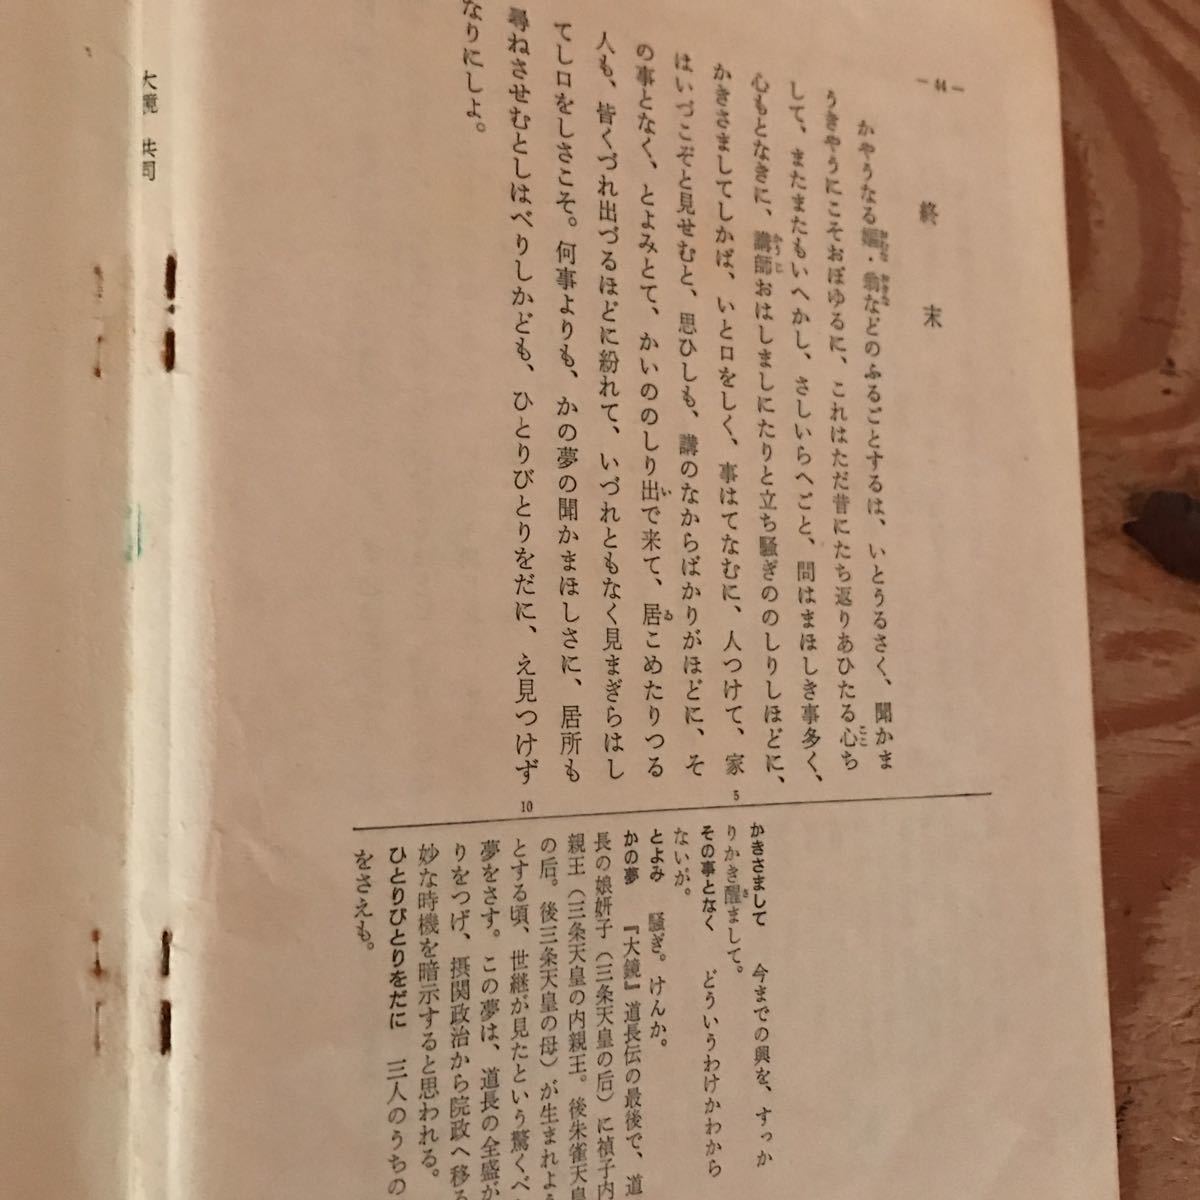 — 44 —
終末
かやうなる嫗・翁などのふるごとするは、いとうるさく、聞かま
うきやうにこそおぼゆるに、これはただ昔にたち返りあひたる心ち
して、またまたもいへかし、さしいらへごと、問はまほしき事多く、
心もとなきに、講師おはしましにたりと立ち騒ぎののしりしほどに、
かきさましてしかば、いと口をしく、事はてなむに、人つけて、家
はいづこぞと見せむと、思ひしも、講のなからばかりがほどに、そ
の事となく、とよみとて、かいののしり出で来て、居こめたりつる
人も、皆くづれ出づるほどに紛れて、いづれともなく見まぎらはし
てし口をしさこそ。何事よりも、かの夢の聞かまほしさに、居所も
尋ねさせむとしはべりしかども、ひとりびとりをだに、え見つけず
なりにしよ。
5
10
かきさまして　今までの興を、すっか
りかき醒まして。
その事となく　どういうわけかわから
ないが。
とよみ　騒ぎ。けんか。
かの夢　『大鏡』道長伝の最後で、道
長の娘妍子（三条天皇の后）に禎子内
親王（三条天皇の内親王。後朱雀天皇
の后。後三条天皇の母）が生まれよう
とする頃、世継が見たという驚くべ
夢をさす。この夢は、道長の全盛が
りをつげ、摂関政治から院政へ移る
妙な時機を暗示すると思われる。
ひとりびとりをだに　三人のうちの
をさえも。
大鏡